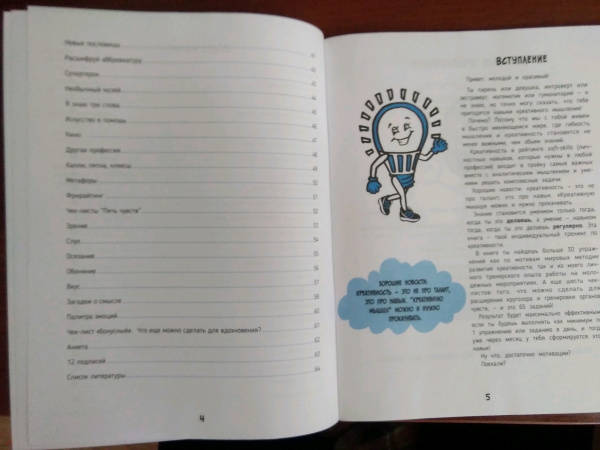 Новые пословицы 41
Расшифруй аббревиатуру 42
Супергерои 43
Необычный музей
Я знаю три слова 45
Искусство в помощь 46
Кино 47
Другая профессия
Капли, пятна, кляксы
Метафоры 50
Фрирайтинг 51
Чек-листы "Пять чувств" 52
Зрение
Слух 54
Осязание 55
Обоняние 56
Вкус 57
Загадаем о смысле 58
Палитра эмоций 60
Чек-лист «Бонусный». Что еще можно сделать для вдохновения? 61
Анкета 62
12 подписей 63
Список литературы 64
4
ВСТУПЛЕНИЕ
Привет, молодой и красивый!
Ты парень или девушка, интроверт или
экстраверт, математик или гуманитарий – я
не знаю, но точно могу сказать, что тебе
пригодятся навыки креативного мышления!
Почему? Потому что мы с тобой живем
в быстро меняющемся мире, где гибкость
мышления и креативность становится не
менее важными, чем объем знаний.
Креативность в рейтинге soft-skills (лич-
ностных навыков, которые нужны в любой
профессии) входит в тройку самых важных
вместе с аналитическим мышлением и уме-
нием решать комплексные задачи.
Хорошие новости: креативность – это не
про талант, это про навык. «Креативную
мышцу» можно и нужно прокачивать.
Знание становится умением только тогда,
когда ты это делаешь, а умение – навыком
тогда, когда ты это делаешь регулярно. Эта
книга – твой индивидуальный тренинг по
креативности.
В книге ты найдешь больше 30 упраж-
нений как по мотивам мировых методик
развития креативности, так и из моего лич-
ного тренерского опыта работы на моло-
дежных мероприятиях. А еще шесть чек-
листов того, что можно сделать для
расширения кругозора и тренировки органов
чувств, – и это 65 заданий!
Результат будет максимально эффективным,
если ты будешь выполнять как минимум по
1 упражнению или заданию в день, и тогда
уже через месяц у тебя сформируется это
навык!
Ну что, достаточно мотивации?
Поехали?
ХОРОШИЕ НОВОСТИ:
КРЕАТИВНОСТЬ – ЭТО НЕ ПРО ТАЛАНТ,
ЭТО ПРО НАВЫК. "КРЕАТИВНУЮ
МЫШЦУ" МОЖНО И НУЖНО
ПРОКАЧИВАТЬ.
5